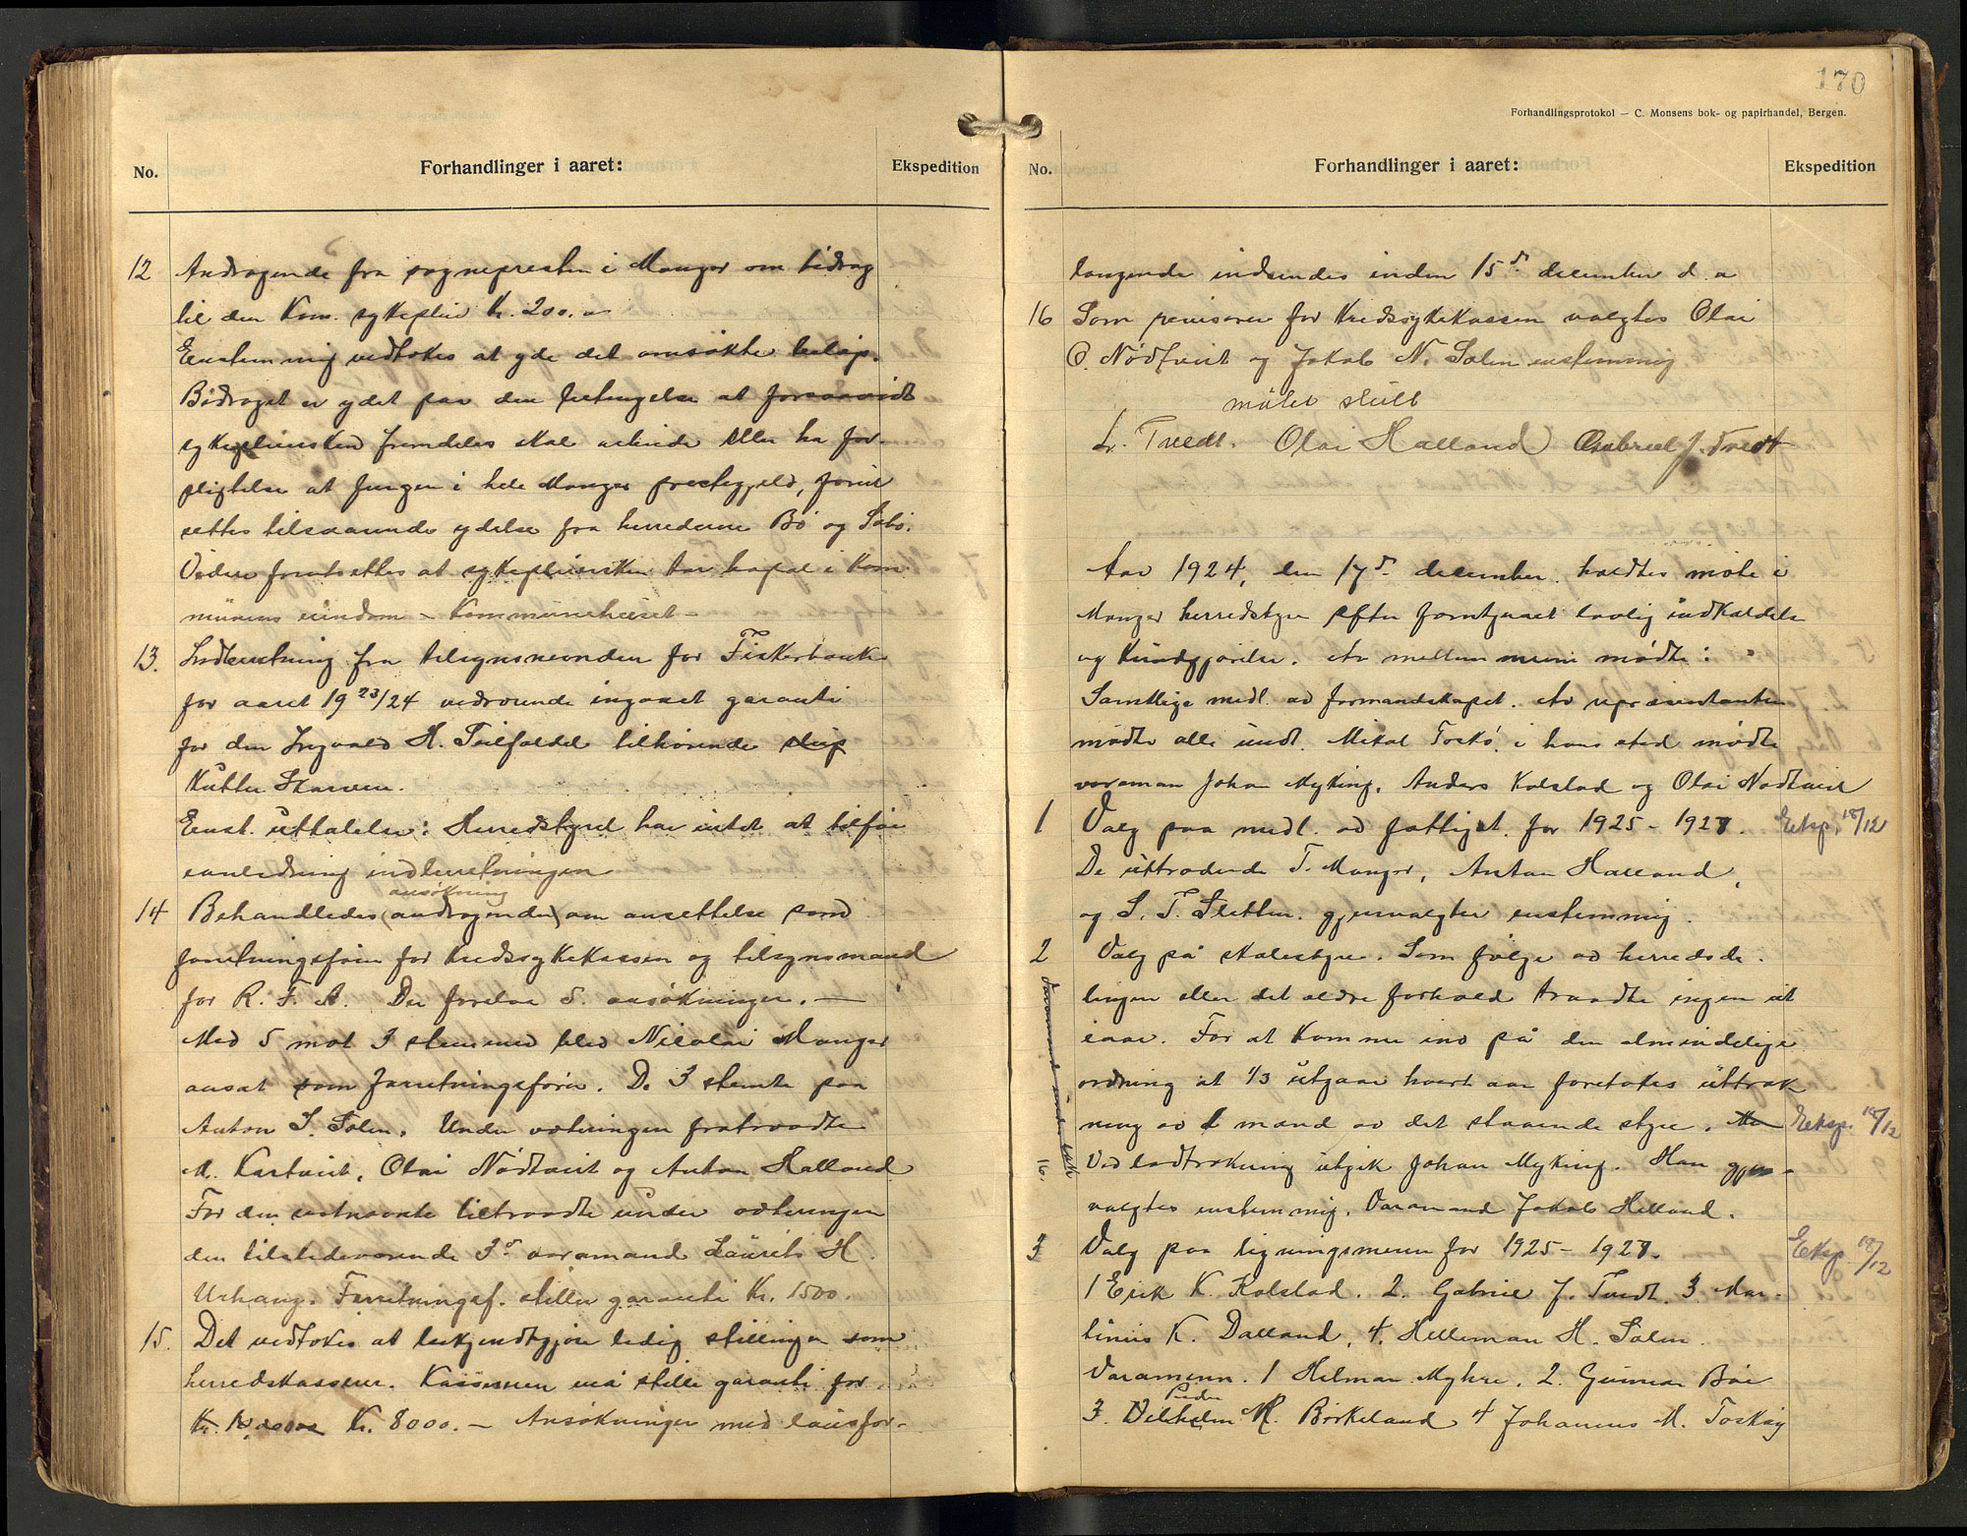 No.
Forhandlinger i aaret:
Ekspedition
12 Andragende fra sognepresten i Manger om bidrag
til den Kom. sykepleie Kr. 200.–
Enstemmig vedtokes at yde det omsøkte beløp.
Bidraget er ydet paa den betingelse at forsaavidt
sykepleiersken fremdeles skal arbeide eller ha for-
pligtelse at fungere i hele Manger prestegjeld, forut
settes tilsvarende ydelse fra herrederne Bø og Sæbø.
Videre forutsettes at sykepleiersken har bopæl i Kom
munens eiendom – Kommunehuset –
13. Indberetning fra tilsynsnevnden for Fiskerbank
for aaret 19 23/24 vedrørende ingaaet garanti
for den Ingvald H. Toilfaldel tilhørende
Kutter Skarven.
Enst. uttalelse: Herredstyret har intet at tilføie
ianledning indberetningen
ansøkning
14 Behandledes (andragender) om ansettelse som
forretningsfører for Kredssykekassen og tilsynsmand
for R. F. A. Der forelaa 5. ansøkninger. —
Med 5 mot 3 stemmer blev Nicolai Manger
ansat som forretningsfører. De 3 stemte paa
Anton I. Solem. Under voteringen fratraadte
M. Kartveit, Olai Nødtveit og Anton Halland
For den sistnevnte tiltraadte under voteringen
den tilstedeværende 3de varamand Laurits H.
Urhaug. Forretningsf. stiller garanti Kr. 1500.
15. Det vedtokes at bekjendtgjøre ledig stillingen som
herredskasserer. Kassereren må stille garanti for
Kr. 8000. – Ansøkninger med lønsfor-
170
Forhandlingsprotokol — C. Monsens bok- og papirhandel, Bergen.
No.
Forhandlinger i aaret:
Ekspedition
langende indsendes inden 15de december d. a
16 Som revisorer for Kredssykekassen valgtes Olai
O. Nødtveit og Jakob N. Solem enstemmig
møtet slutt
L. Tvedt. Olai Halland Gabriel J. Tvedt
Aar 1924, den 17de december holdtes møte i
Manger herredstyre efter forutgaaet lovlig indkaldelse
og Kundgjørelse. Av mellem mennene mødte:
Samtlige medl. av formandskapet. Av representanter
mødte alle undt. Mikal Toskø, i hans sted mødte
varaman Johan Myking. Anders Kolstad og Olai Nødtveit
1 Valg paa medl. av fattigst. for 1925 – 1927. Eksp. 18/12
De uttrædende T. Manger, Anton Halland,
og S. T. Sletten. gjenvalgtes enstemmig.
2 Valg på skolestyre. Som følge av herredsde-
lingen eller det ældre forhold traadte ingen ut
iaar. For at Komme ind på den almindelige
ordning at 1/3 utgaar hvert aar foretokes uttræk
ning av 1 mand av det staaende styre. Eksp. 18/12
Ved lodtrækning utgik Johan Myking. Han gjen-
valgtes enstemmig. Varamand Jakob Helland.
3 Valg paa ligningsmenn for 1925 – 1927. Eksp. 18/12
1 Erik K. Kolstad. 2. Gabriel J. Tvedt. 3. Mar-
tinus K. Dalland, 4. Helleman H. Solem.
Varamenn. 1 Hilmar Myhre, 2. Gunnar Bøe
Peder
3. Vilhelm M. Birkeland 4 Johannes M. Toskøy